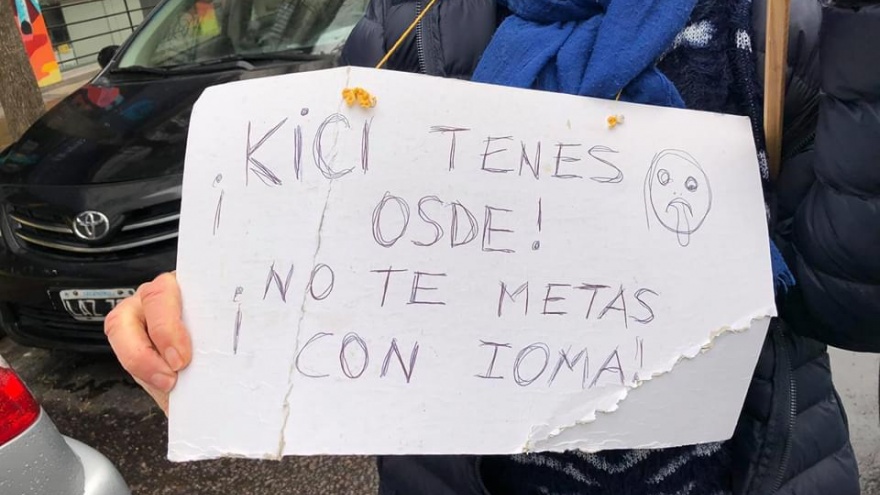 ¡KICI TENES
OSDE!
¡NO TE METAS
CON IOMA!